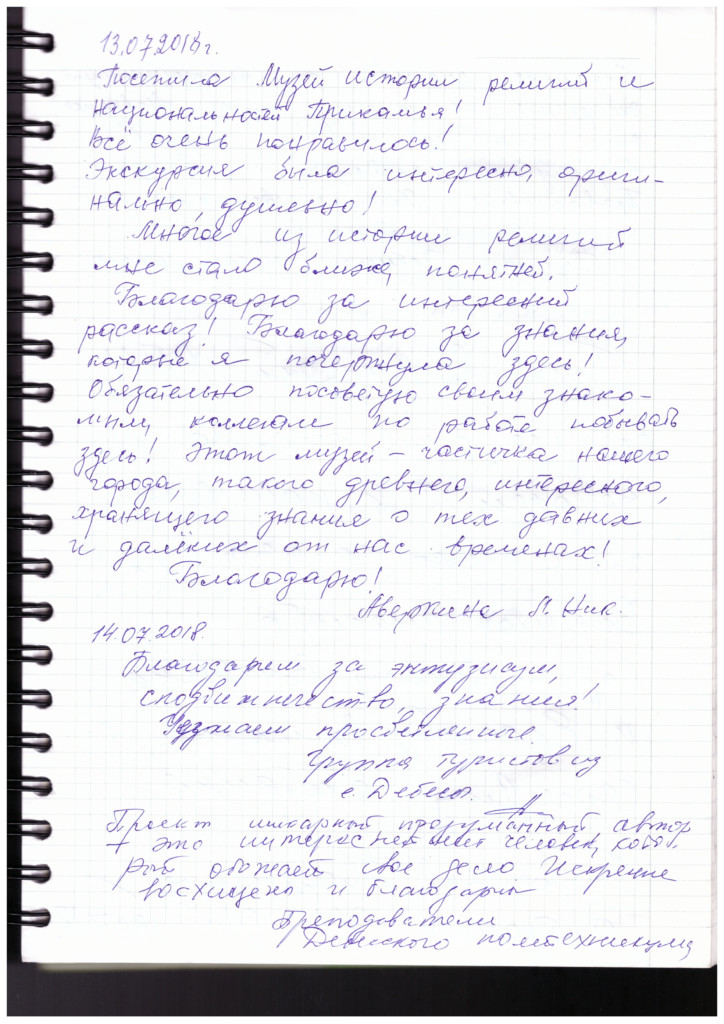 13.07.2018г.
Посетила Музей истории религий и
национальностей Прикамья!
Всё очень понравилось!
Экскурсия была интересна, ориги-
нально, душевно!
Многое из истории религий
мне стало ближе, понятней.
Благодарю за интересный
рассказ! Благодарю за знания,
которые я почерпнула здесь!
Обязательно посоветую своим знако-
мым, коллегам по работе побывать
здесь! Этот музей – частичка нашего
города, такого древнего, интересного,
хранящего знания о тех давних
и далёких от нас временах!
Благодарю!
Аверкина Л. Ник.
14.07.2018.
Благодарим за энтузиазм,
сподвижничество, знания!
Уезжаем просветленные.
Группа туристов из
с. Дебесы.
Проект шикарный продуманный автор
это интереснейший человек, кото-
рый обожает свое дело. Искренне
восхищены и благодарны
Преподаватели
Дебесского политехникума